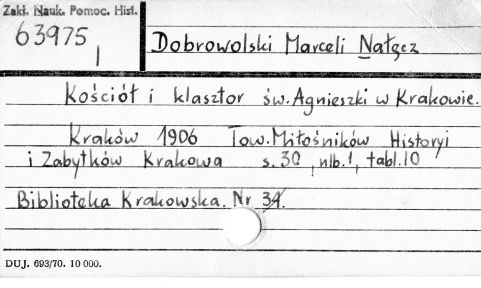 Zakł. Nauk. Pomoc. Hist.
63975
I
Dobrowolski Marceli Nałęcz
Kościół i klasztor św. Agnieszki w Krakowie.
Kraków 1906 Tow. Miłośników Historyi
i Zabytków Krakowa s. 30, nlb. 1, tabl. 10
Biblioteka Krakowska. Nr 34.
DUJ. 693/70. 10 000.